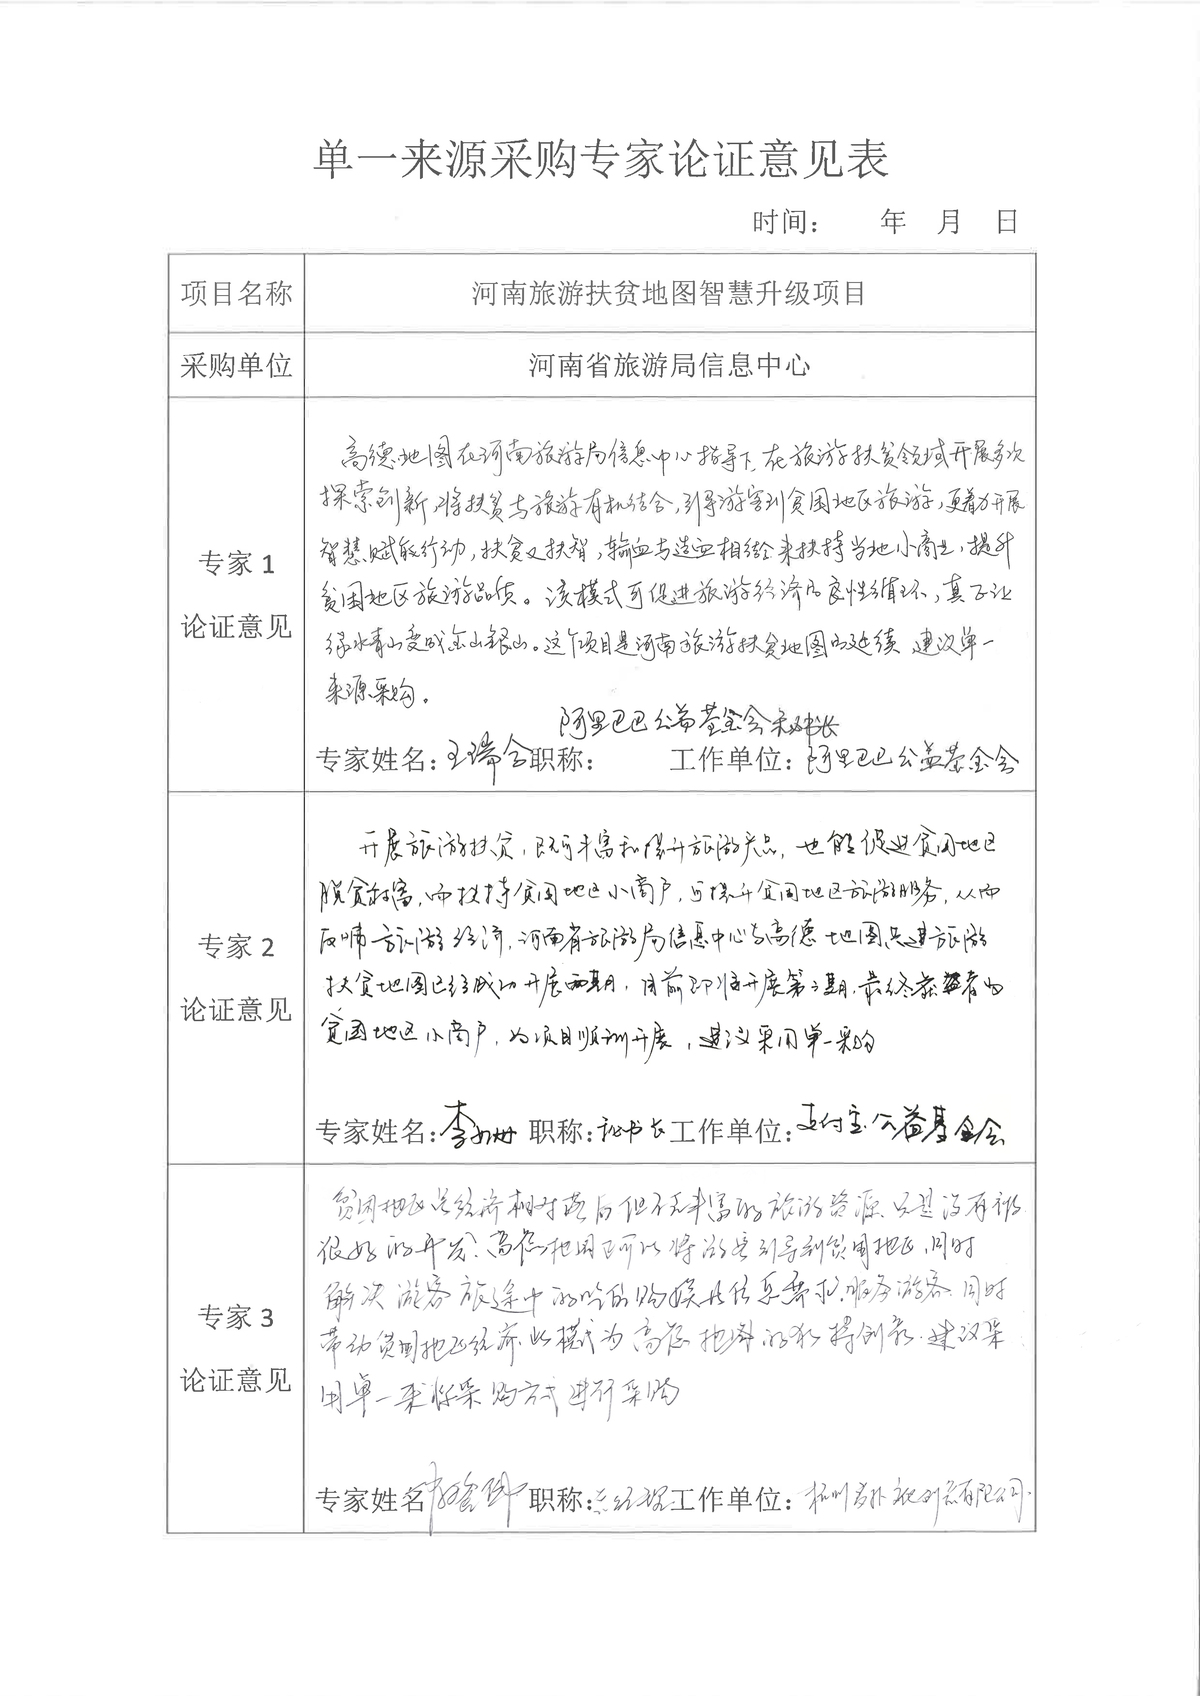 单一来源采购专家论证意见表
时间： 年 月 日
项目名称 河南旅游扶贫地图智慧升级项目
采购单位 河南省旅游局信息中心
专家 1
论证意见
高德地图在河南旅游局信息中心指导下，在旅游扶贫领域开展多次
探索创新，将扶贫与旅游有机结合，引导游客到贫困地区旅游，更着力开展
智慧赋能行动，扶贫又扶智，输血与造血相结合来扶持当地小商业，提升
贫困地区旅游品质。该模式可促进旅游经济的良性循环，真正让
绿水青山变成金山银山。这个项目是河南旅游扶贫地图的延续，建议单一
来源采购。
阿里巴巴公益基金会秘书长
专家姓名：王瑞合 职称： 工作单位：阿里巴巴公益基金会
专家 2
论证意见
开展旅游扶贫，既可丰富和提升旅游产品，也能促进贫困地区
脱贫致富，而扶持贫困地区小商户，可提升贫困地区旅游服务，从而
反哺旅游经济，河南省旅游局信息中心与高德地图共建旅游
扶贫地图已经成功开展两期，目前即将开展第三期，最终获益者为
贫困地区小商户，为项目顺利开展，建议采用单一采购
专家姓名： 职称：秘书长 工作单位：支付宝公益基金会
专家 3
论证意见
贫困地区虽经济相对落后但不乏丰富的旅游资源，只是没有被
很好的开发，高德地图可以将游客引导到贫困地区，同时
解决游客旅途中的吃的购娱等信息需求，服务游客，同时
带动贫困地区经济，此模式为高德地图的独特创新，建议采
用单一来源采购方式进行采购
专家姓名 职称：总经理 工作单位：杭州 有限公司